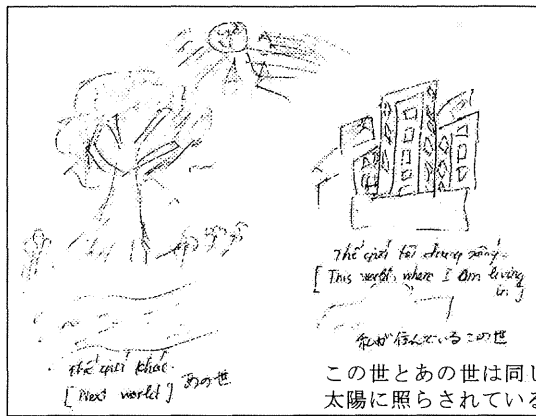 Thế giới tôi đang sống.
[ This world, where I am living
in ]
私が住んでいるこの世
thế giới khác.
[ Next world ] あの世
この世とあの世は同じ
太陽に照らされている